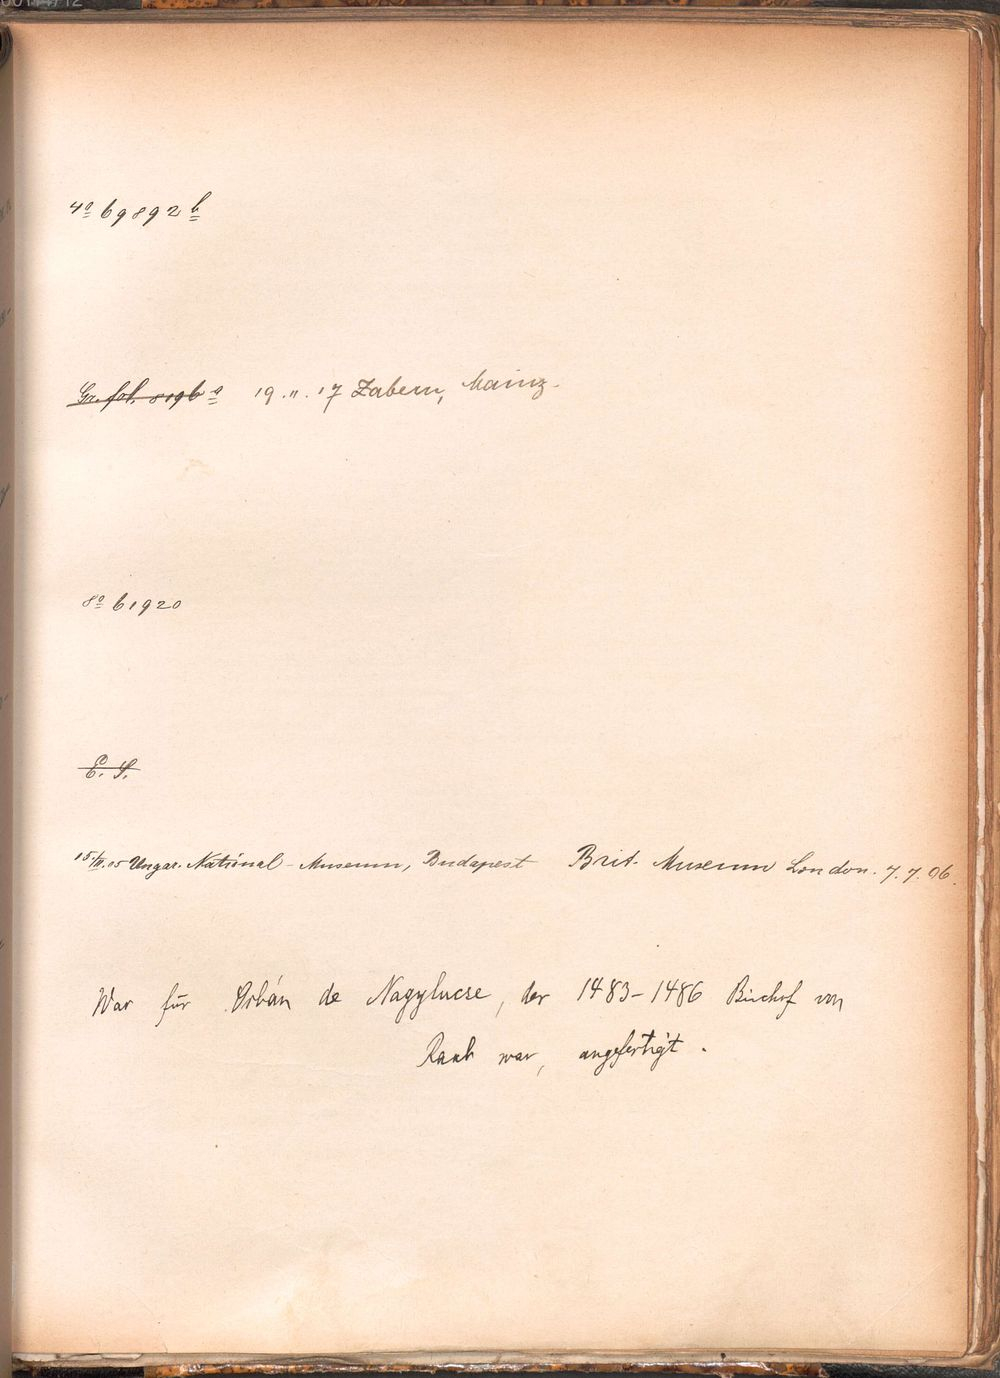 4º 69892 b
Gr. fol. 8196 a 19.II.17 Zabern, Mainz.
8º 61920
E. S.
15./III.05 Ungar. National-Museum, Budapest Brit. Museum London. 7.7.06.
War für Orbán de Nagylucse, der 1483-1486 Bischof von
Raab war, angefertigt.